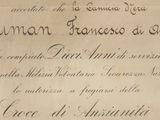 accertato che la Camicia Nera
uman Francesco di A
compiuto Dieci Anni di servizio
nella Milizia Volontaria Sicurezza Naz
lo autorizza a fregiarsi della
Croce di Anzianità